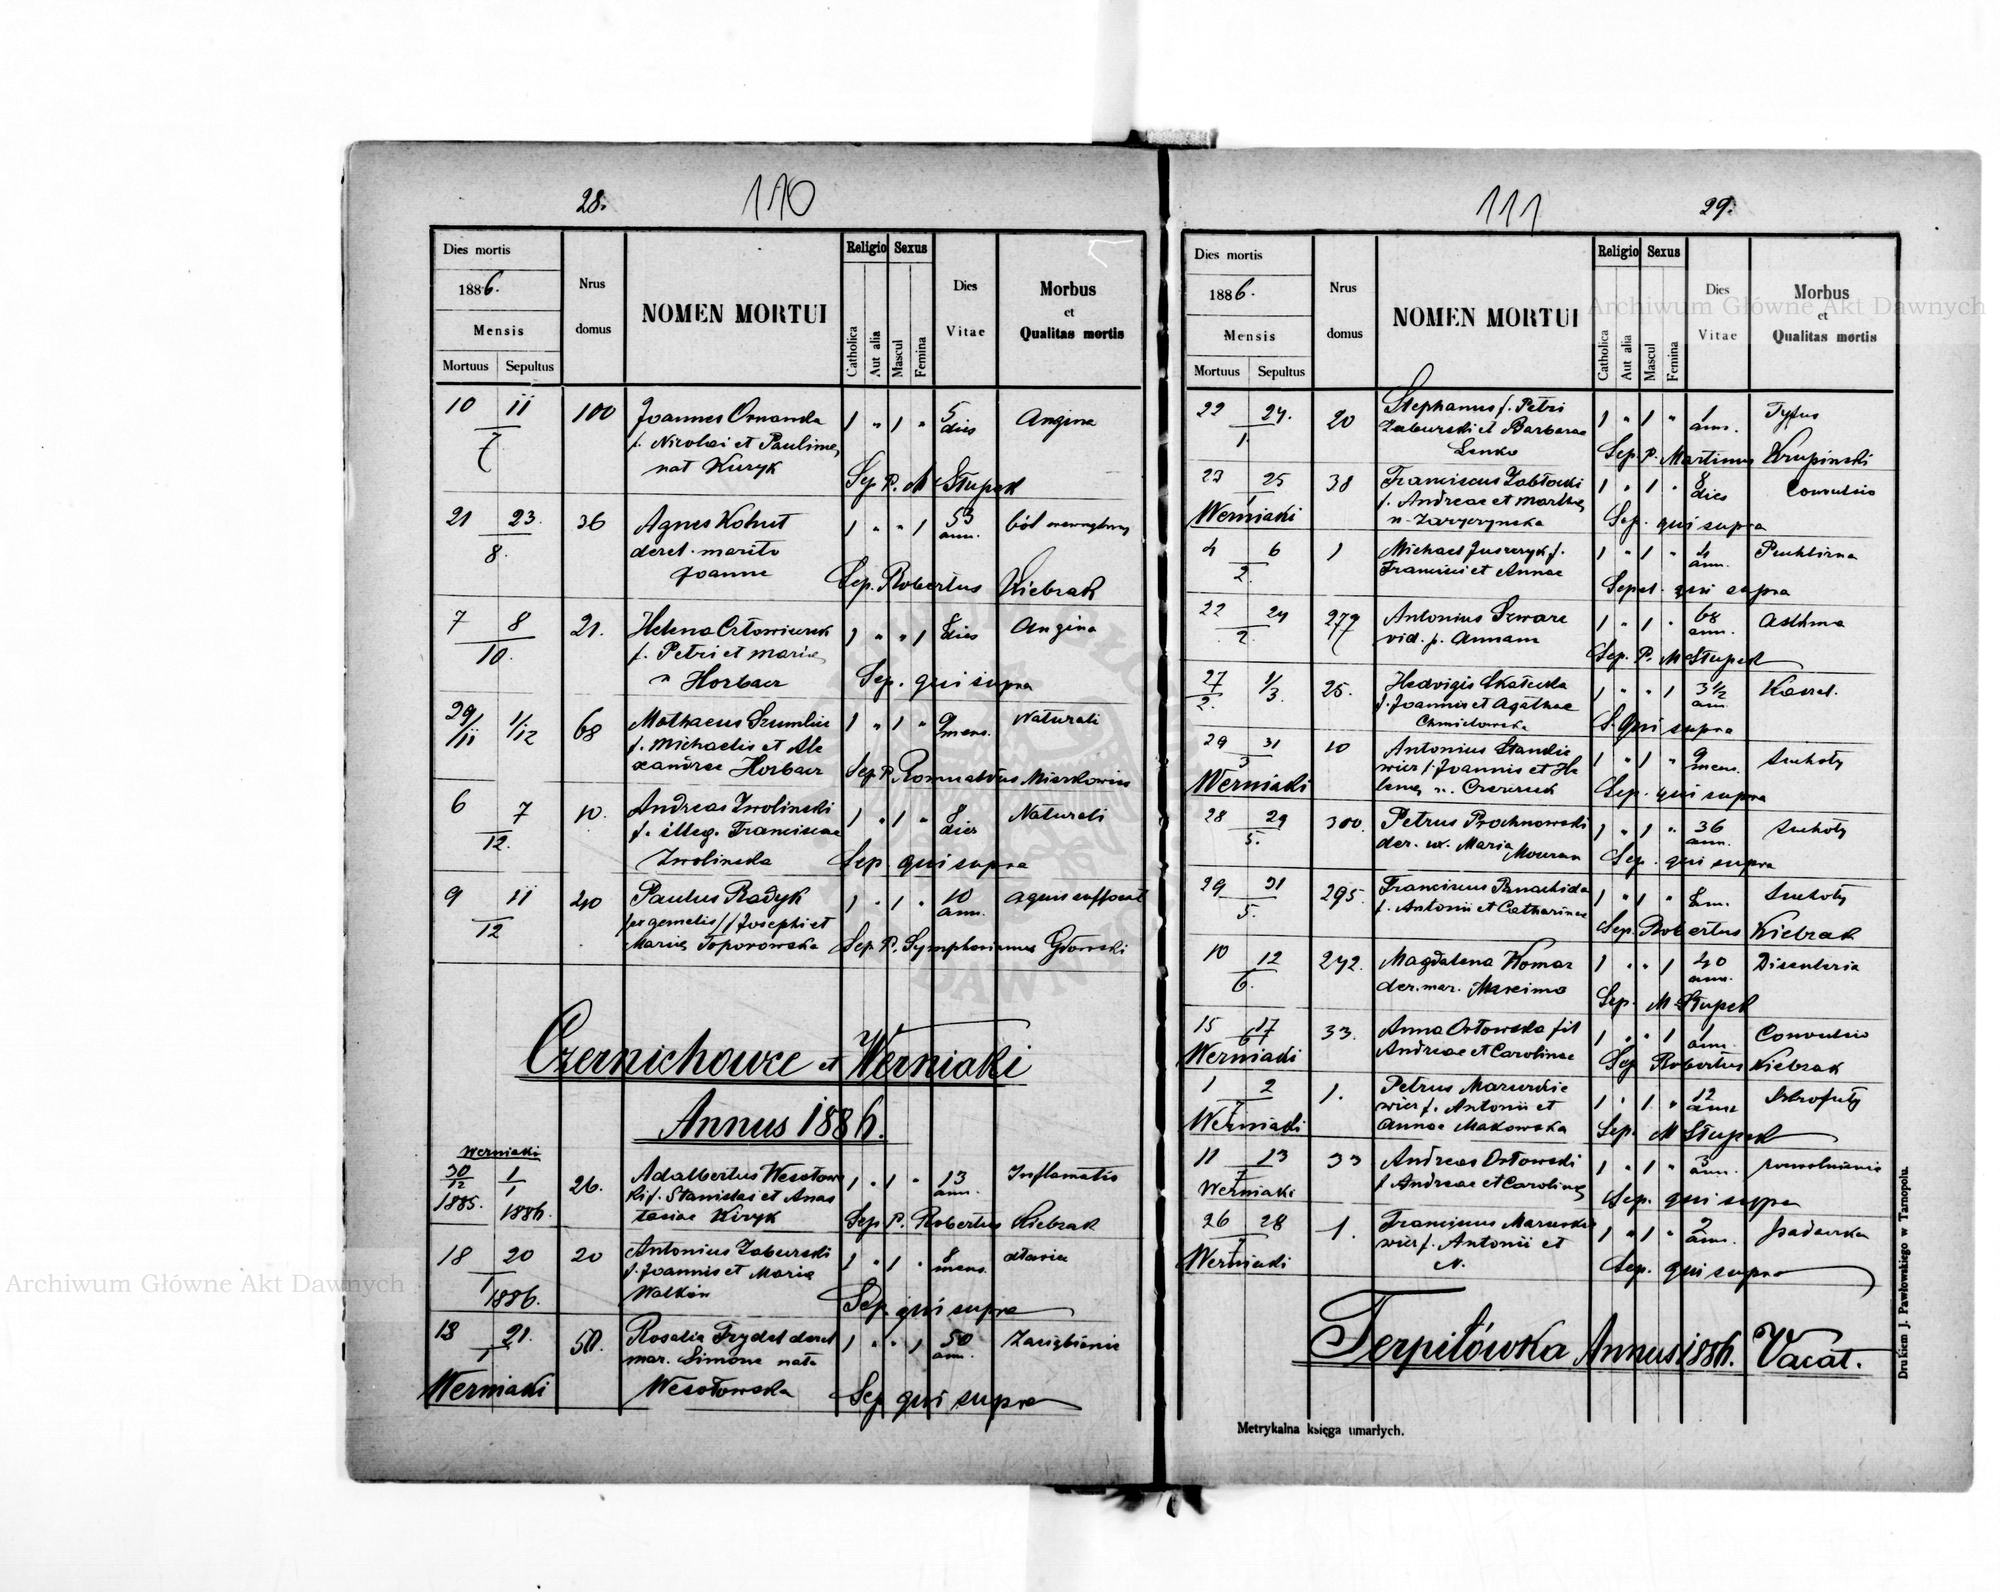 28.
110
Dies mortis
1886.
Mensis
Mortuus Sepultus
Nrus domus
NOMEN MORTUI
Religio
Catholica
Aut alia
Sexus
Mascul
Femina
Dies Vitae
Morbus
et
Qualitas mortis
10 11 100 Joannes Ornanda 1 " 1 " 5 dies Angina
7 f. Nicolai et Paulinae
nat Kuryk Sep. P. M Słupek
21 23. 36 Agnes Kohut 1 " " 1 53 ann. ból
8. derel. marito
Joanne Sep. Robertus Kiebzak
7 8 21. Helena 1 " " 1 8 dies Angina
10. f. Petri et Mariae
n Horbacz Sep. qui supra
29/11 1/12 68 Mathaeus Szumlic 1 " 1 " 9 mens. Naturali
f. Michaelis et Ale
xandrae Horbacz Sep. P. Romualdus
6 7 10. Andreas Zwolinski 1 " 1 " 8 dies Naturali
12. f. illeg. Franciscae
Zwolinska Sep. qui supra
9 11 240 Paulus Radyk 1 " 1 " 10 ann. aquis suffocat
12 /ex gemelis/ f Josephi et
Mariae Toporowska Sep. P. Symphorianus Głowski
Czernichowce et Werniaki
Annus 1886.
Werniaki
30/12 1/1 26. Adalbertus Wesołow 1 " 1 " 13 ann. Inflamatio
1885. 1886. ki f. Stanislai et Anas
tasiae Kiryk Sep. P. Robertus Kiebzak
18 20 20 Antonius Zaburski 1 " 1 " 8 mens.
1 f. Joannis et Mariae
1886. Walkon Sep. qui supra
18 21. 50. Rosalia Frydel derel 1 " " 1 50 ann. Zaziębienie
1 mar. Simone nata
Werniaki Wesołowska Sep qui supra
111
29.
Dies mortis
1886.
Mensis
Mortuus Sepultus
Nrus domus
NOMEN MORTUI
Religio
Catholica
Aut alia
Sexus
Mascul
Femina
Dies Vitae
Morbus
et
Qualitas mortis
22 24. 20 Stephanus f. Petri 1 " 1 " 1 ann. Tyfus
1. Zaburski et Barbarae
Lenko Sep. P. Martinus Krupinski
23 25 38 Franciscus Zabłocki 1 " 1 " 8 dies Convulsio
1 f. Andreae et Marthae
Werniaki n. Sep. qui supra
4 6 1 Michael Juszczyk f. 1 " 1 " 4 ann. Puchlizna
2. Francisci et Annae
Sepel. qui supra
22 24 279 Antonius Szwarc 1 " 1 " 68 ann. Asthma
2. vid. p. Annam
Sep. P. M Słupek
27/2. 1/3. 25. Hedvigis Skalecka 1 " " 1 3 1/2 an.
f. Joannis et Agathae
Chmielowska S. qui supra
29 31 10 Antonius Stankie 1 " 1 " 9 mens. Suchoty
3 wicz f. Joannis et He
Werniaki lenae n. Sep. qui supra
28 29 300. Petrus Prochnowski 1 " 1 " 36 ann. Suchoty
5. der. ux. Maria
Mouran Sep. qui supra
29 31 295. Franciscus Panachida 1 " 1 " 8 m. Suchoty
5. f. Antonii et Catharinae
Sep. Robertus Kiebzak
10 12 242. Magdalena Komar 1 " " 1 40 ann. Disenteria
6. der. mar. Maximo
Sep. M. Słupek
15 17 33. Anna Orłowska fil 1 " " 1 1 ann. Convulsio
6 Andreae et Carolinae
Werniaki Sep Robertus Kiebzak
1 2 1. Petrus Mazurkie 1 " 1 " 12 ann Skrofuły
7 wicz f. Antonii et
Werniaki Annae Makowska Sep. M Słupek
11 13 33 Andreas Orłowski 1 " 1 " 3 ann.
7 f Andreae et Carolinae
Werniaki Sep. qui supra
26 28 1. Franciscus Mazurkie 1 " 1 " 2 ann.
7 wicz f. Antonii et
Werniaki N. Sep. qui supra
Terpiłówka Annus 1886. Vacat.
Metrykalna księga umarłych.
Drukiem J. Pawłowskiego w Tarnopolu.
Archiwum Główne Akt Dawnych
Archiwum Główne Akt Dawnych